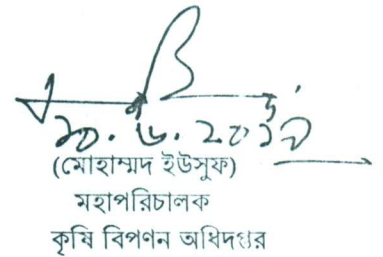 (মোহাম্মদ ইউসুফ)
মহাপরিচালক
কৃষি বিপণন অধিদপ্তর